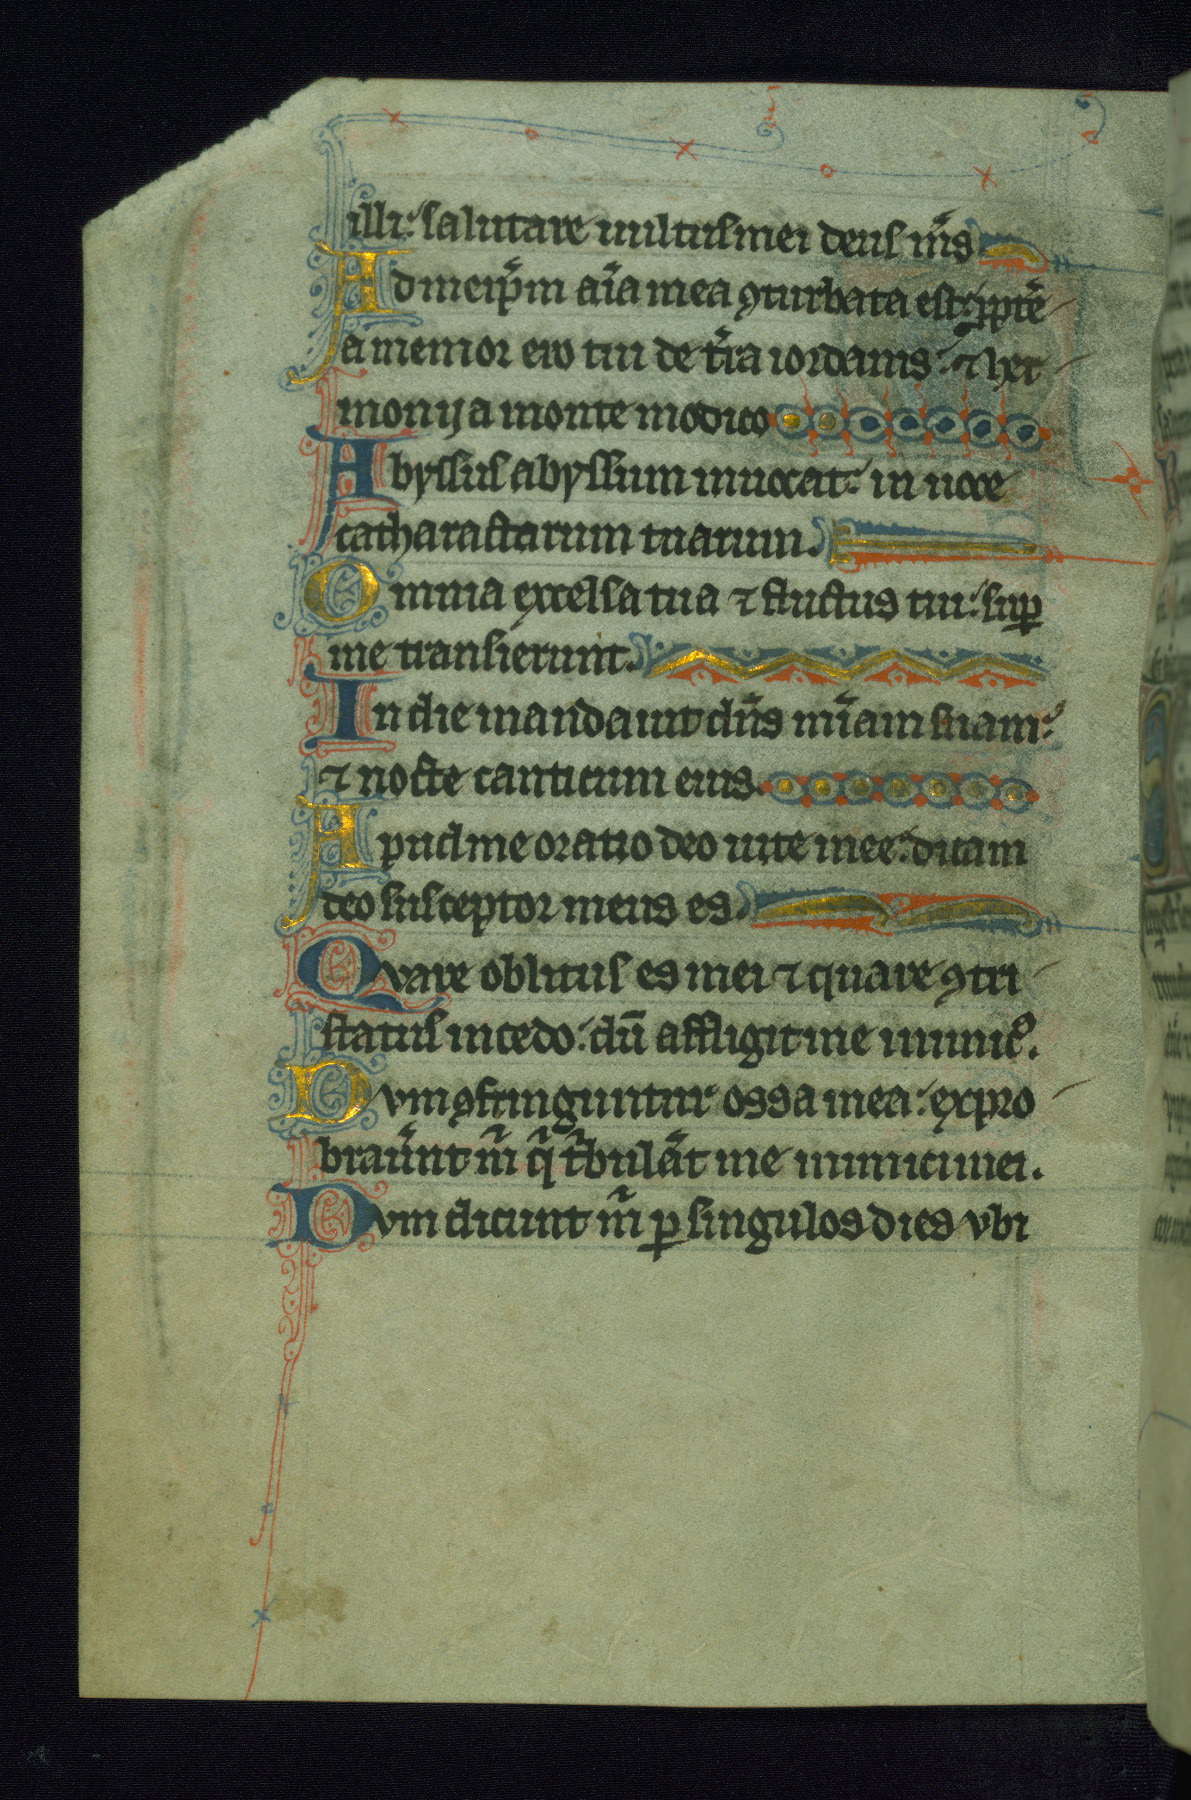 illi: salutare uultus mei deus mr̄s
Ad meip̄m aīa mea ꝯturbata est: ꝓpt̄e
a memor ero tui de t̄ra iordanis: ⁊ her
monij a monte modico
Abyssus abyssum inuocat: in uoce
catharactarum tuarum.
Omnia excelsa tua ⁊ fluctus tui: suꝑ
me transierunt.
In die mandauit dn̄s mīam suam:
⁊ nocte canticum eius.
Apud me oratio deo uite mee: dicam
deo susceptor meus es.
Qvare oblitus es mei ⁊ quare ꝯtri
status incedo: dū affligit me inimicꝰ.
Dvm ꝯfringuntur ossa mea: expro
braūnt m̄ q̄ t̄bulāt me inimici mei.
Dvm dicunt m̄ ꝑ singulos dies vbi